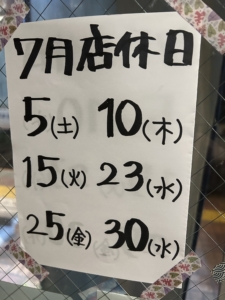 7月店休日
5(土) 10(木)
15(火) 23(水)
25(金) 30(水)